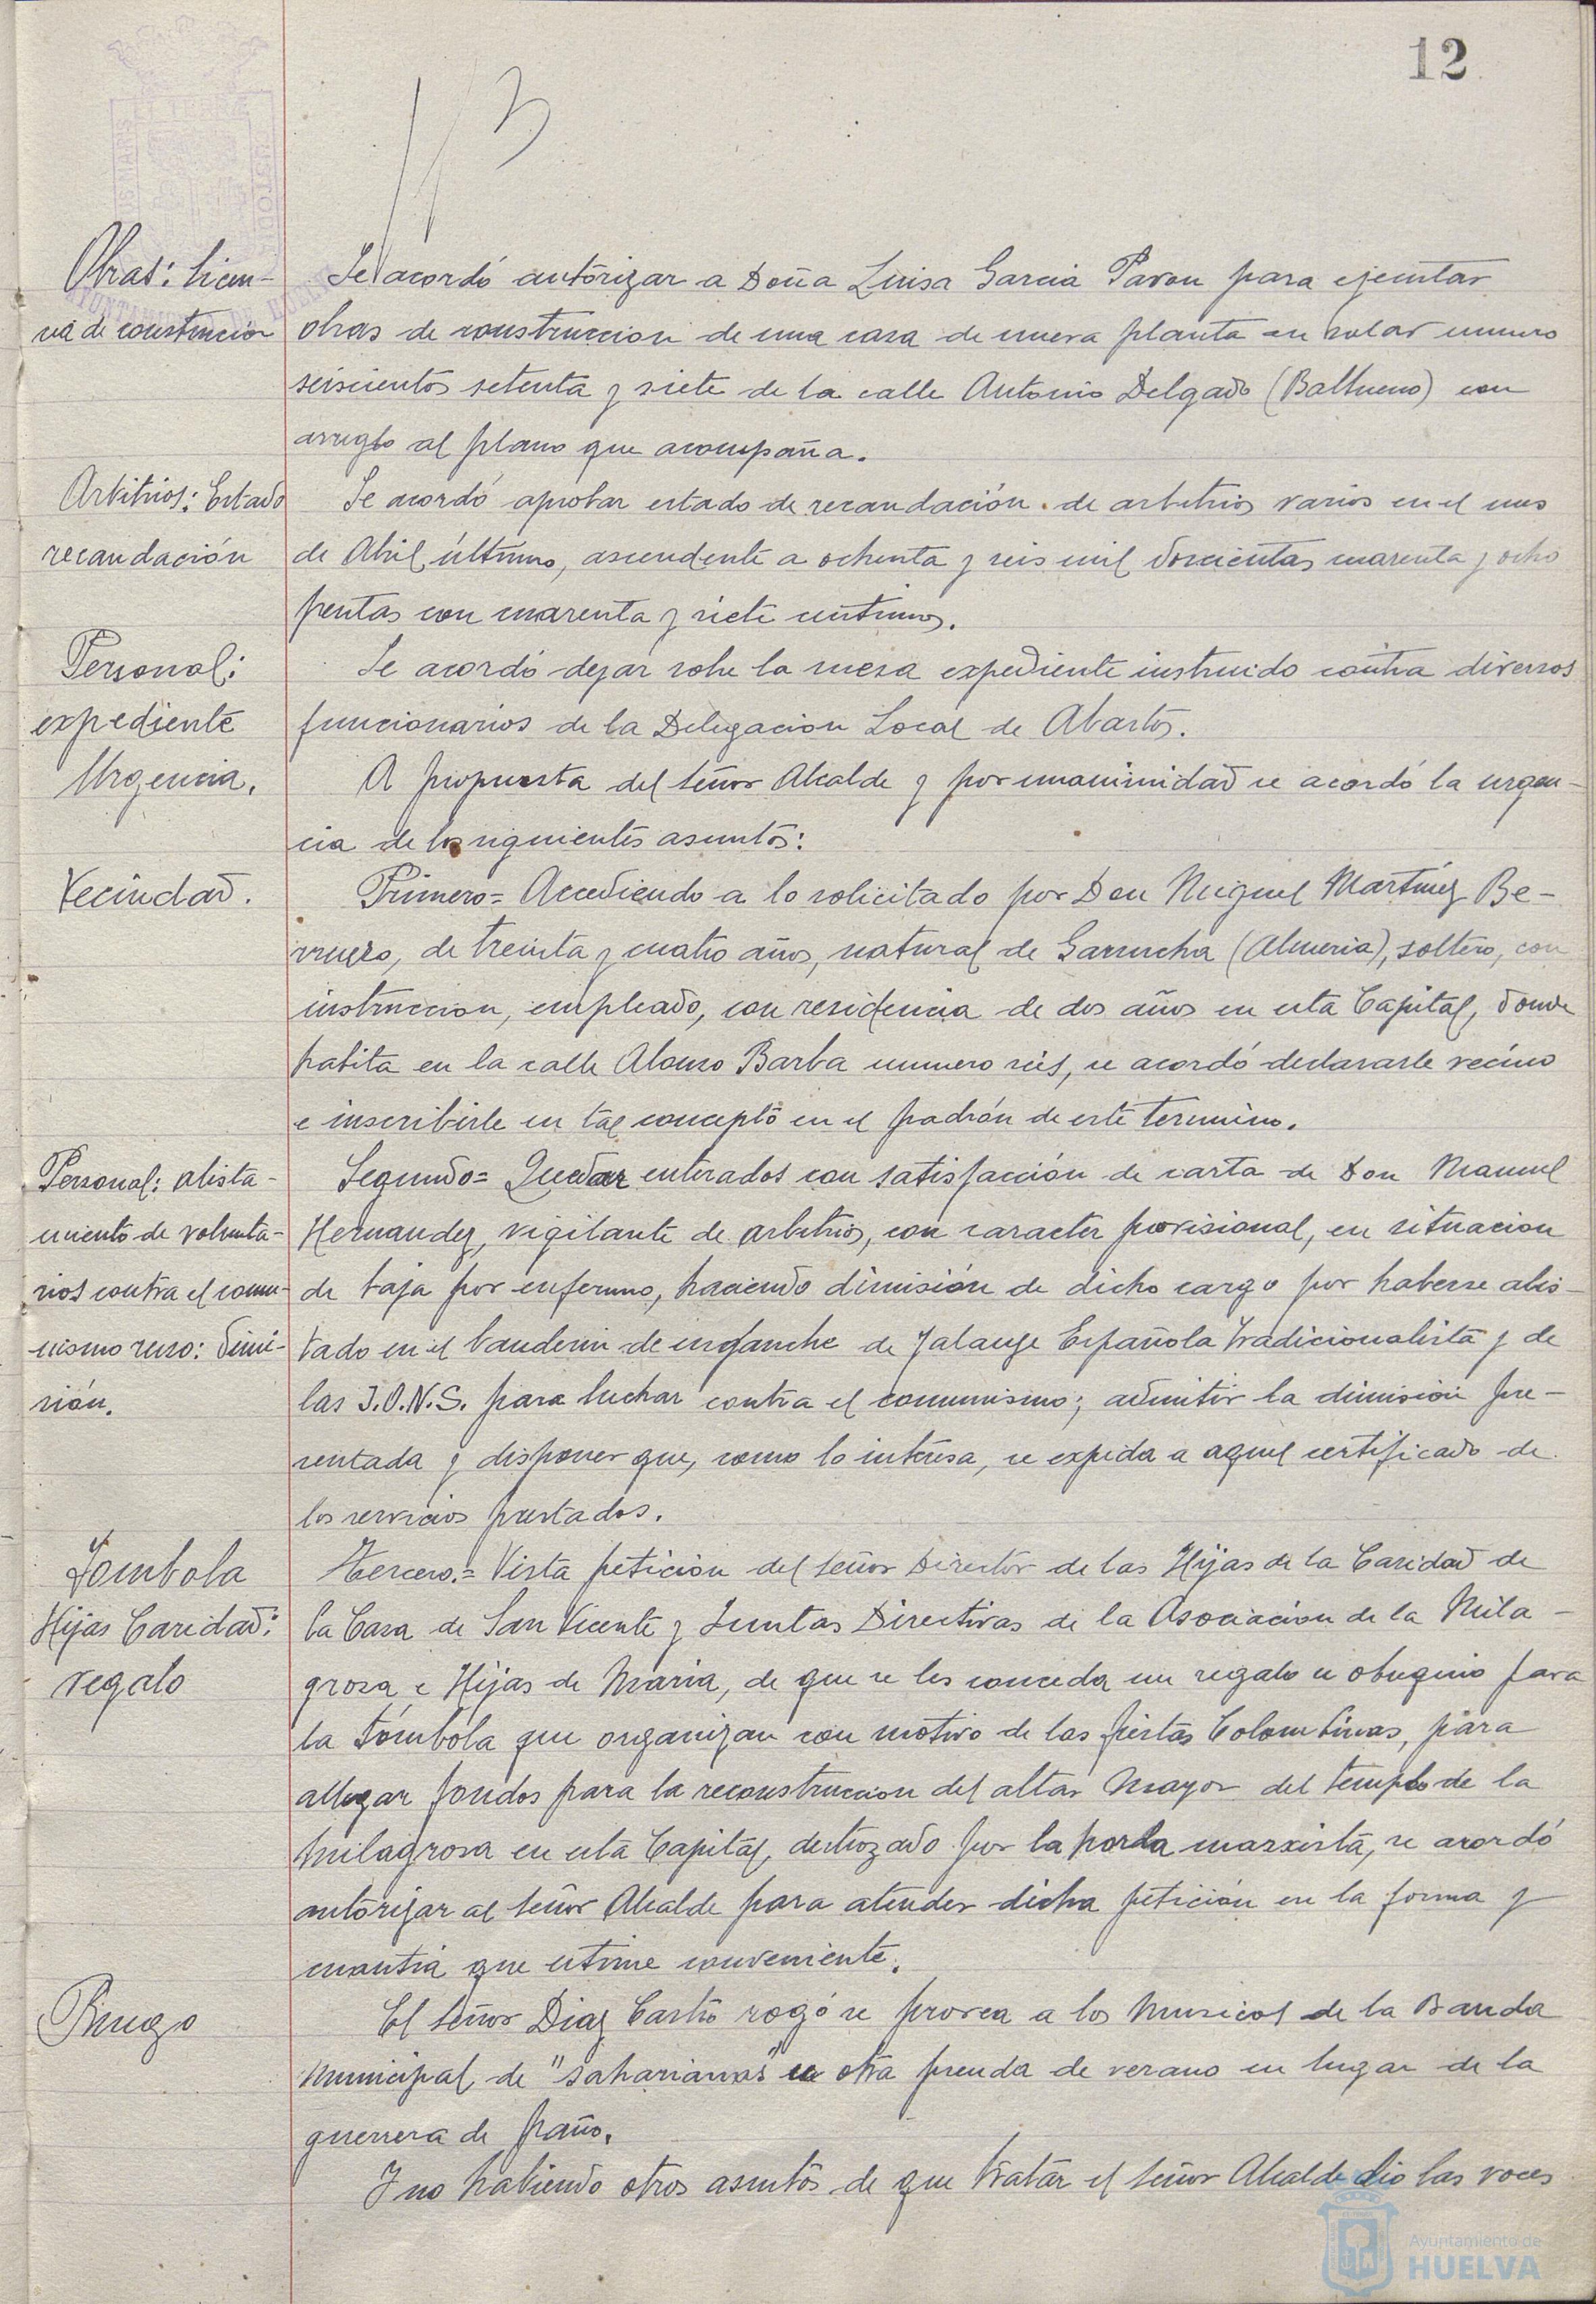 12
Obras: licen-
cia de construccion
Se acordó autorizar a Doña Luisa Garcia Pavon para ejecutar
obras de construccion de una casa de nueva planta en solar numero
seiscientos setenta y siete de la calle Antonio Delgado (Balbueno) con
arreglo al plano que acompaña.
Arbitrios: Estado
recaudación
Se acordó aprobar estado de recaudación de arbitrios varios en el mes
de Abril último, ascendente a ochenta y seis mil doscientas cuarenta y ocho
pesetas con cuarenta y siete centimos.
Personal:
expediente
Se acordó dejar sobre la mesa expediente instruido contra diversos
funcionarios de la Delegacion Local de Abastos.
Urgencia.
A propuesta del señor Alcalde y por unanimidad se acordó la urgen-
cia de los siguientes asuntos:
Vecindad.
Primero= Accediendo a lo solicitado por Don Miguel Martínez Be-
, de treinta y cuatro años, natural de Garrucha (Almeria), soltero, con
instruccion, empleado, con residencia de dos años en esta Capital, donde
habita en la calle Alonso Barba numero seis, se acordó declararle vecino
e inscribirle en tal concepto en el padrón de este termino.
Personal: alista-
miento de volunta-
rios contra el comu-
nismo ruso: dimi-
sión.
Segundo= Quedar enterados con satisfacción de carta de Don Manuel
Hernandez, vigilante de arbitrios, con caracter provisional, en situacion
de baja por enfermo, haciendo dimisión de dicho cargo por haberse alis-
tado en el banderin de enganche de Falange Española Tradicionalista y de
las J.O.N.S. para luchar contra el comunismo; admitir la dimisión pre-
sentada y disponer que, como lo interesa, se expida a aquel certificado de
los servicios prestados.
Tombola
Hijas Caridad:
regalo
Tercero.= Vista peticion del señor Director de las Hijas de la Caridad de
la Casa de San Vicente y Juntas Directivas de la Asociacion de la Mila-
grosa e Hijas de Maria, de que se les conceda un regalo u obsequio para
la tómbola que organizan con motivo de las fiestas Colombinas, para
allegar fondos para la reconstruccion del altar Mayor del templo de la
Milagrosa en esta Capital, destrozado por la horda marxista, se acordó
autorizar al señor Alcalde para atender dicha petición en la forma y
cuantia que estime conveniente.
Ruego
El señor Diaz Castro rogó se provea a los Musicos de la Banda
Municipal de "saharianas" u otra prenda de verano en lugar de la
guerrera de paño.
Y no habiendo otros asuntos de que tratar el señor Alcalde dio las voces
Ayuntamiento de
HUELVA